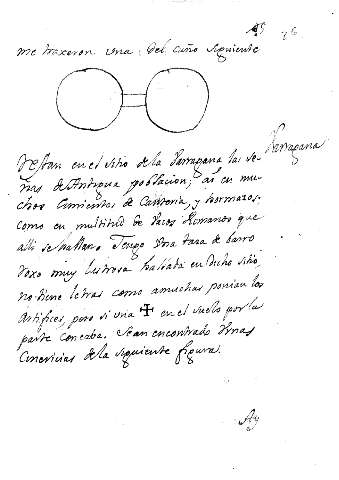 76
me traxeron una del cuño siguiente
Parragana
Restan en el sitio de la Parragana las se-
ñas de Antigua poblacion; asi en mu-
chos Cimientos de Canteria, y hormazos.
como en multitud de Vasos Romanos que
alli se hallan. Tengo una taza de barro
roxo muy lustrosa hallada en dicho sitio
no tiene letras como amuchas ponian los
Artifices, pero si una ✠ en el suelo por la
parte concaba. Sean encontrado Urnas
Cinericias de la siguiente figura.
Ay